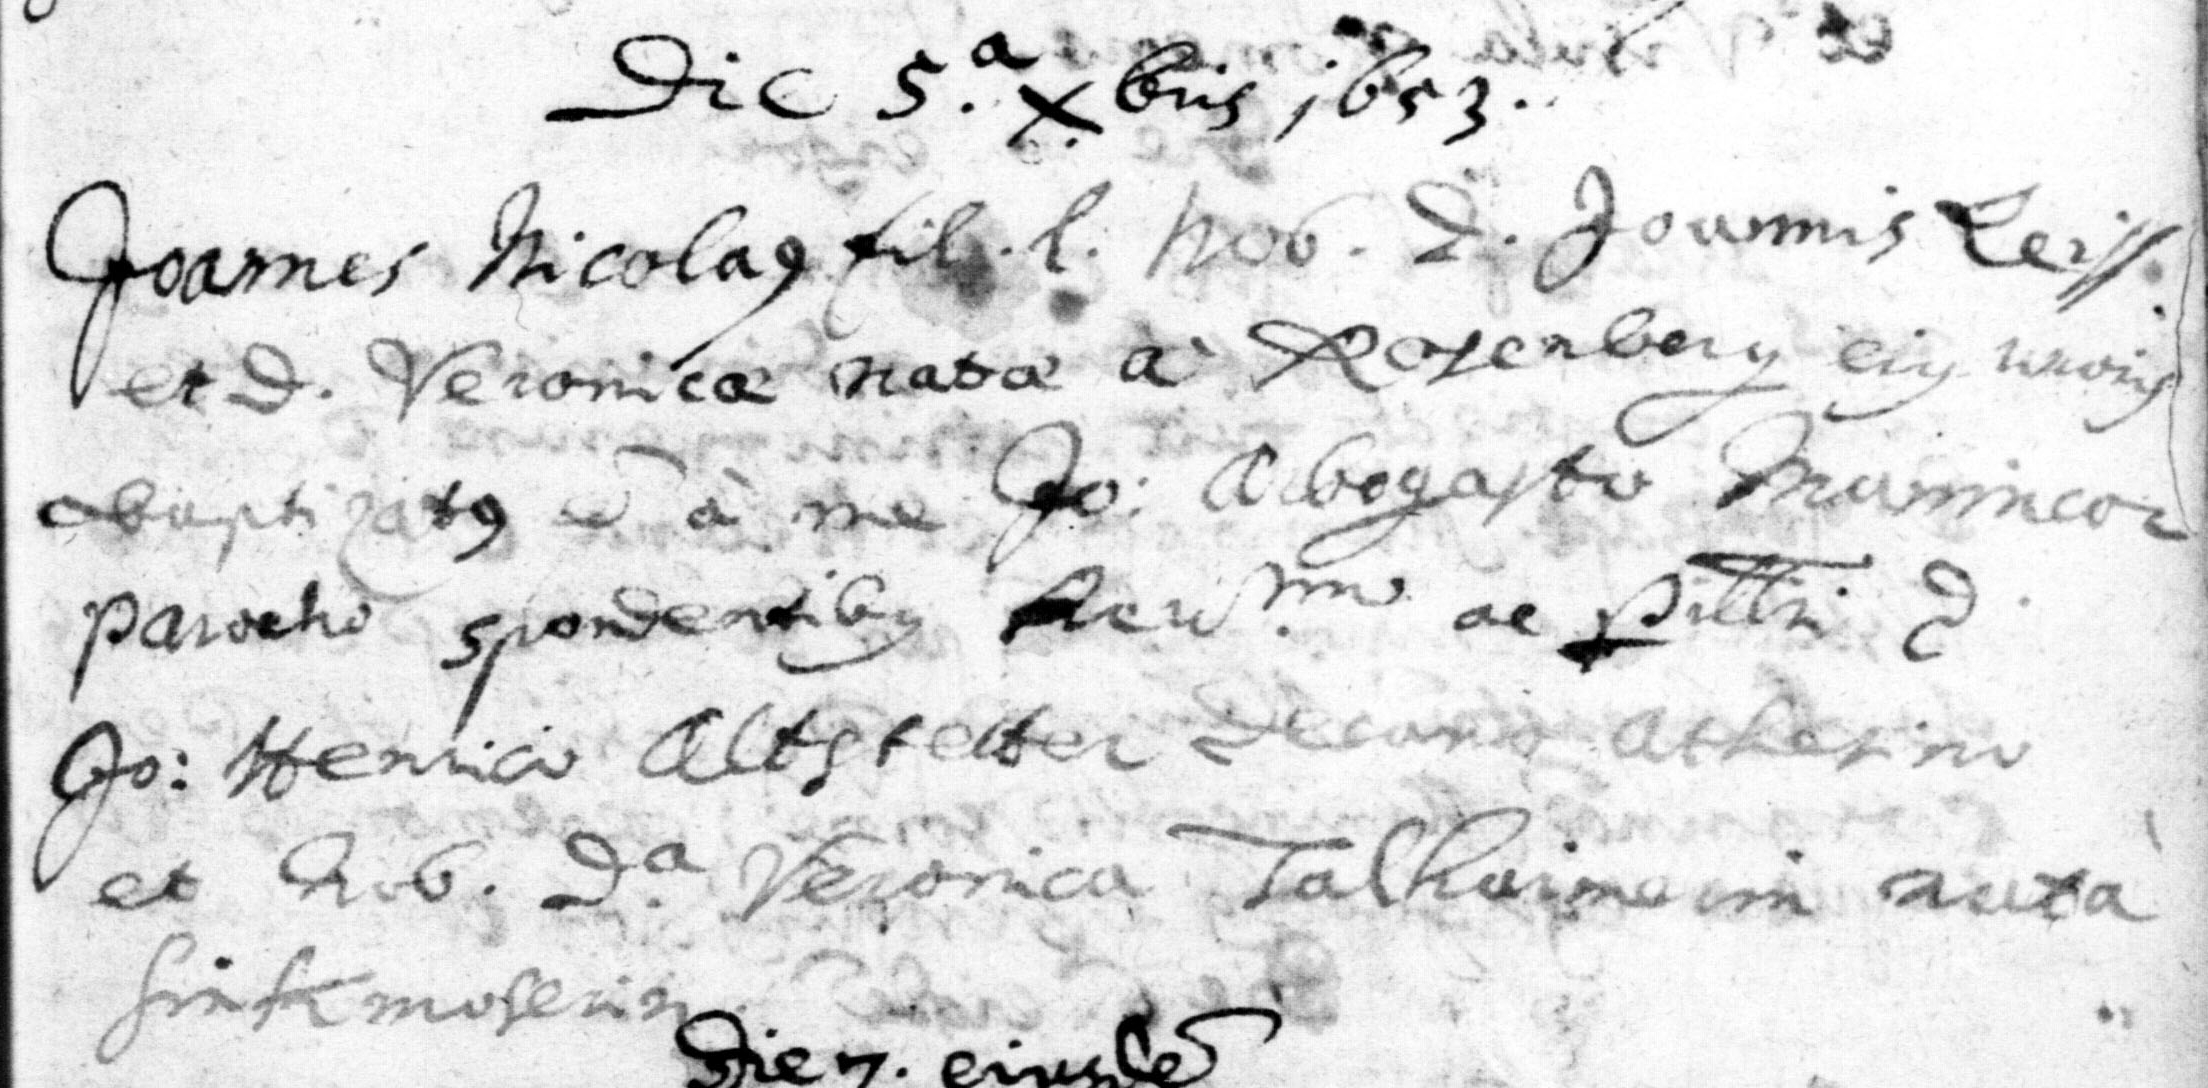 Die 5.a Xbris 1653.
Joannes Nicolaq fil. l. Nob. D. Joannis Leiss
et D. Veronicæ natæ à Rosenberg eiq uxoris
baptizatq ē à me Jo: Arbogasto
Parocho spondentibq ac D.
Jo: Henrico Altstetter Decano Athesino
et Nob. D.a Veronica Talhaimerin nata
Finkmoserin.
Die 7. eiusdē